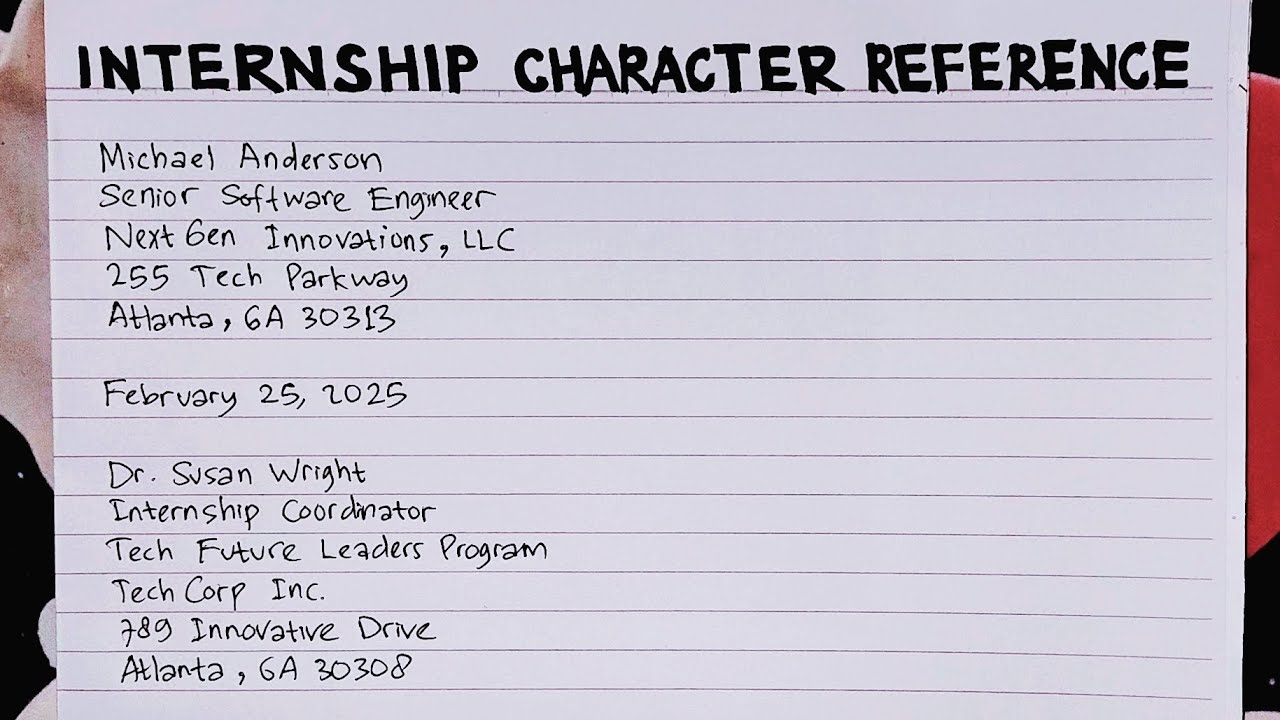 INTERNSHIP CHARACTER REFERENCE
Michael Anderson
Senior Software Engineer
NextGen Innovations, LLC
255 Tech Parkway
Atlanta, GA 30313
February 25, 2025
Dr. Susan Wright
Internship Coordinator
Tech Future Leaders Program
TechCorp Inc.
789 Innovative Drive
Atlanta, GA 30308